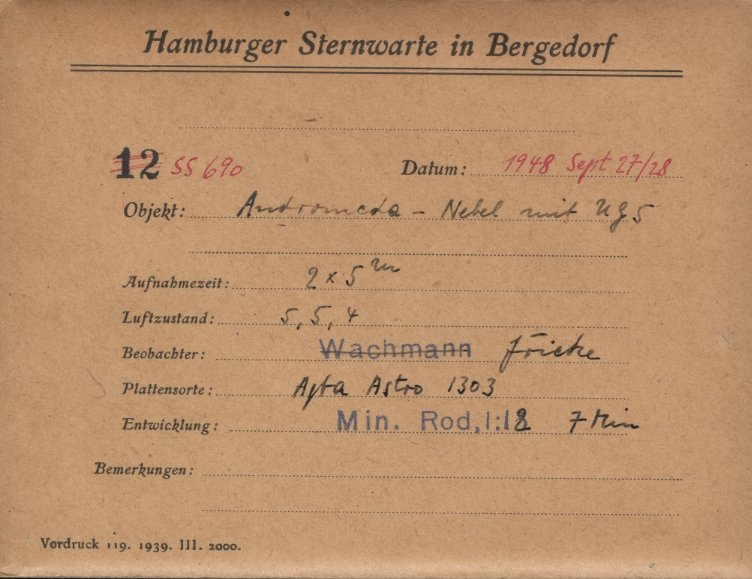 Hamburger Sternwarte in Bergedorf
12 SS 690 Datum: 1948 Sept 27/28
Objekt: Andromeda - Nebel mit UG 5
Aufnahmezeit: 2 x 5 m
Luftzustand: 5, 5, 4
Beobachter: Wachmann Fricke
Plattensorte: Agfa Astro 1303
Entwicklung: Min. Rod, 1:12 7 Min
Bemerkungen:
Vordruck 119. 1939. III. 2000.